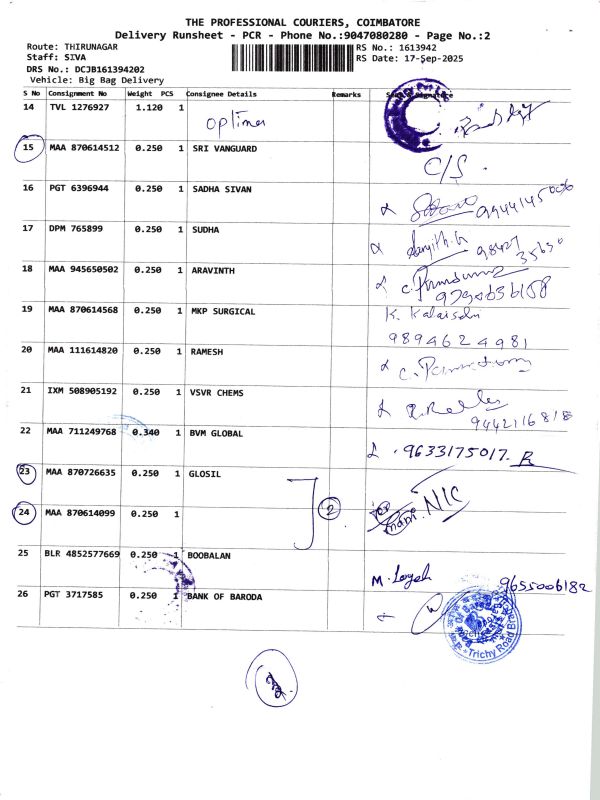 THE PROFESSIONAL COURIERS, COIMBATORE
Delivery Runsheet - PCR - Phone No.:9047080280 - Page No.:2
Route: THIRUNAGAR
Staff: SIVA
DRS No.: DCJB161394202
Vehicle: Big Bag Delivery
RS No.: 1613942
RS Date: 17-Sep-2025
S No Consignment No Weight PCS Consignee Details Remarks
14 TVL 1276927 1.120 1
15 MAA 870614512 0.250 1 SRI VANGUARD C/S
16 PGT 6396944 0.250 1 SADHA SIVAN
17 DPM 765899 0.250 1 SUDHA
18 MAA 945650502 0.250 1 ARAVINTH
19 MAA 870614568 0.250 1 MKP SURGICAL K. Kalaiselvi
9894624981
20 MAA 111614820 0.250 1 RAMESH
21 IXM 508905192 0.250 1 VSVR CHEMS
9442116818
22 MAA 711249768 0.340 1 BVM GLOBAL 9633175017. R
23 MAA 870726635 0.250 1 GLOSIL
24 MAA 870614099 0.250 1 2 NIC
25 BLR 4852577669 0.250 1 BOOBALAN 9655006182
26 PGT 3717585 0.250 1 BANK OF BARODA
Trichy Road